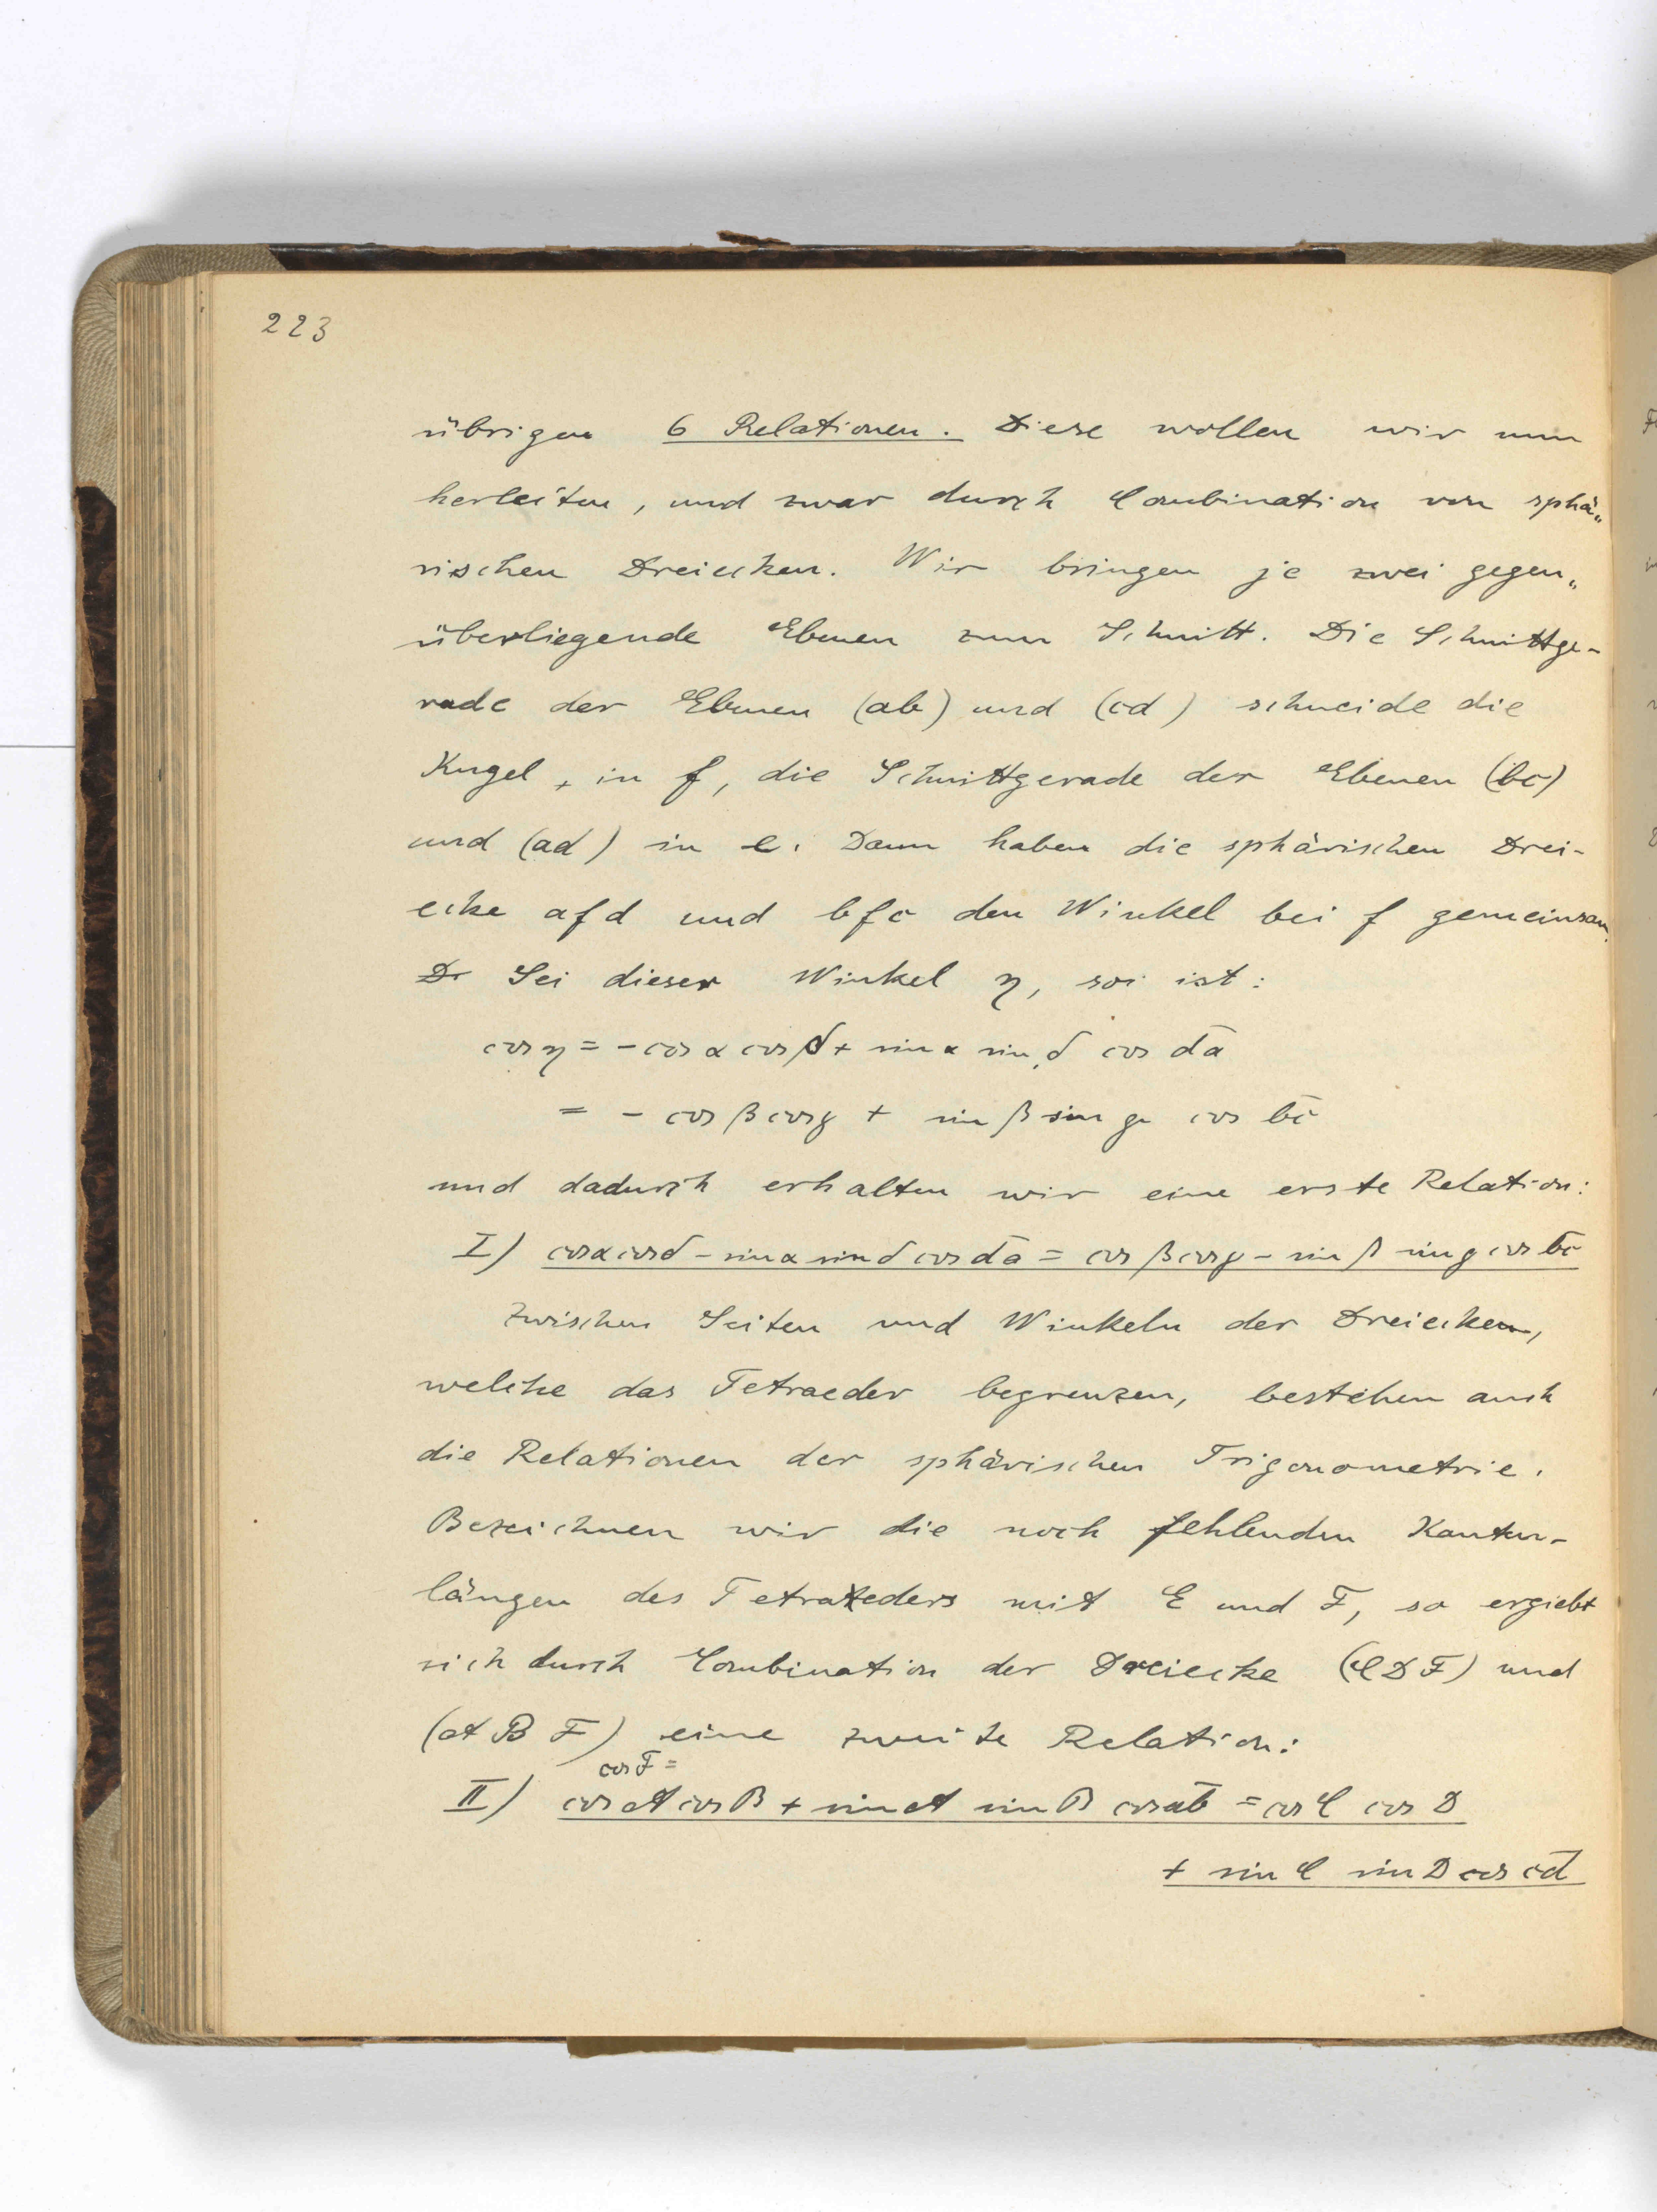 223
übrigen 6 Relationen. Diese wollen wir nun
herleiten, und zwar durch Combination von sphä„
rischen Dreiecken. Wir bringen je zwei gegen„
überliegende Ebenen zum Schnitt. Die Schnittge-
rade der Ebenen (ab) und (cd) schneide die
Kugel, in f, die Schnittgerade der Ebenen (bc)
und (ad) in e. Dann haben die sphärischen Drei-
ecke afd und bfc den Winkel bei f gemeinsam.
Sei dieser Winkel η, so ist:
cos η = - cos α cos δ + sin α sin δ cos d̅a̅
= - cos β cos γ + sin β sin γ cos b̅c̅
und dadurch erhalten wir eine erste Relation:
I) cos α cos δ - sin α sin δ cos d̅a̅ = cos β cos γ - sin β sin γ cos b̅c̅
Zwischen Seiten und Winkeln der Dreiecke,
welche das Tetraeder begrenzen, bestehen auch
die Relationen der sphärischen Trigonometrie.
Bezeichnen wir die noch fehlenden Kanten-
längen des Tetraeders mit E und F, so ergiebt
sich durch Combination der Dreiecke (CDF) und
(ABF) eine zweite Relation:
cos F =
II) cos A cos B + sin A sin B cos a̅b̅ = cos C cos D
+ sin C sin D cos c̅d̅